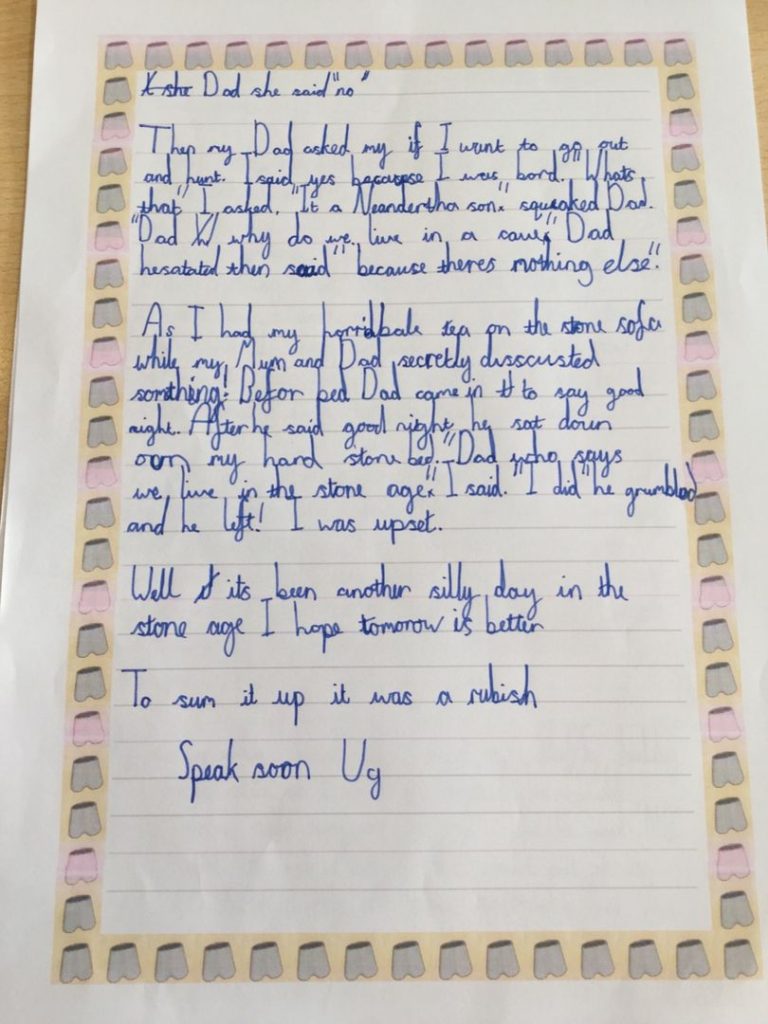 Dad she said "no"
Then my Dad asked my if I want to go out
and hunt. I said yes because I was bord. "Whats
that" I asked. "It a Neandertha son" squeaked Dad.
"Dad why do we live in a cave" Dad
hesatated then said "because theres nothing else".
As I had my horribale tea on the stone sofa
while my Mum and Dad secretly disscusted
somthing! Befor bed Dad came in to say good
night. After he said good night he sat down
on my hard stone bed. "Dad who says
we live in the stone age" I said. "I did" he grumbled
and he left! I was upset.
Well its been another silly day in the
stone age I hope tomorow is better
To sum it up it was a rubish
Speak soon Ug